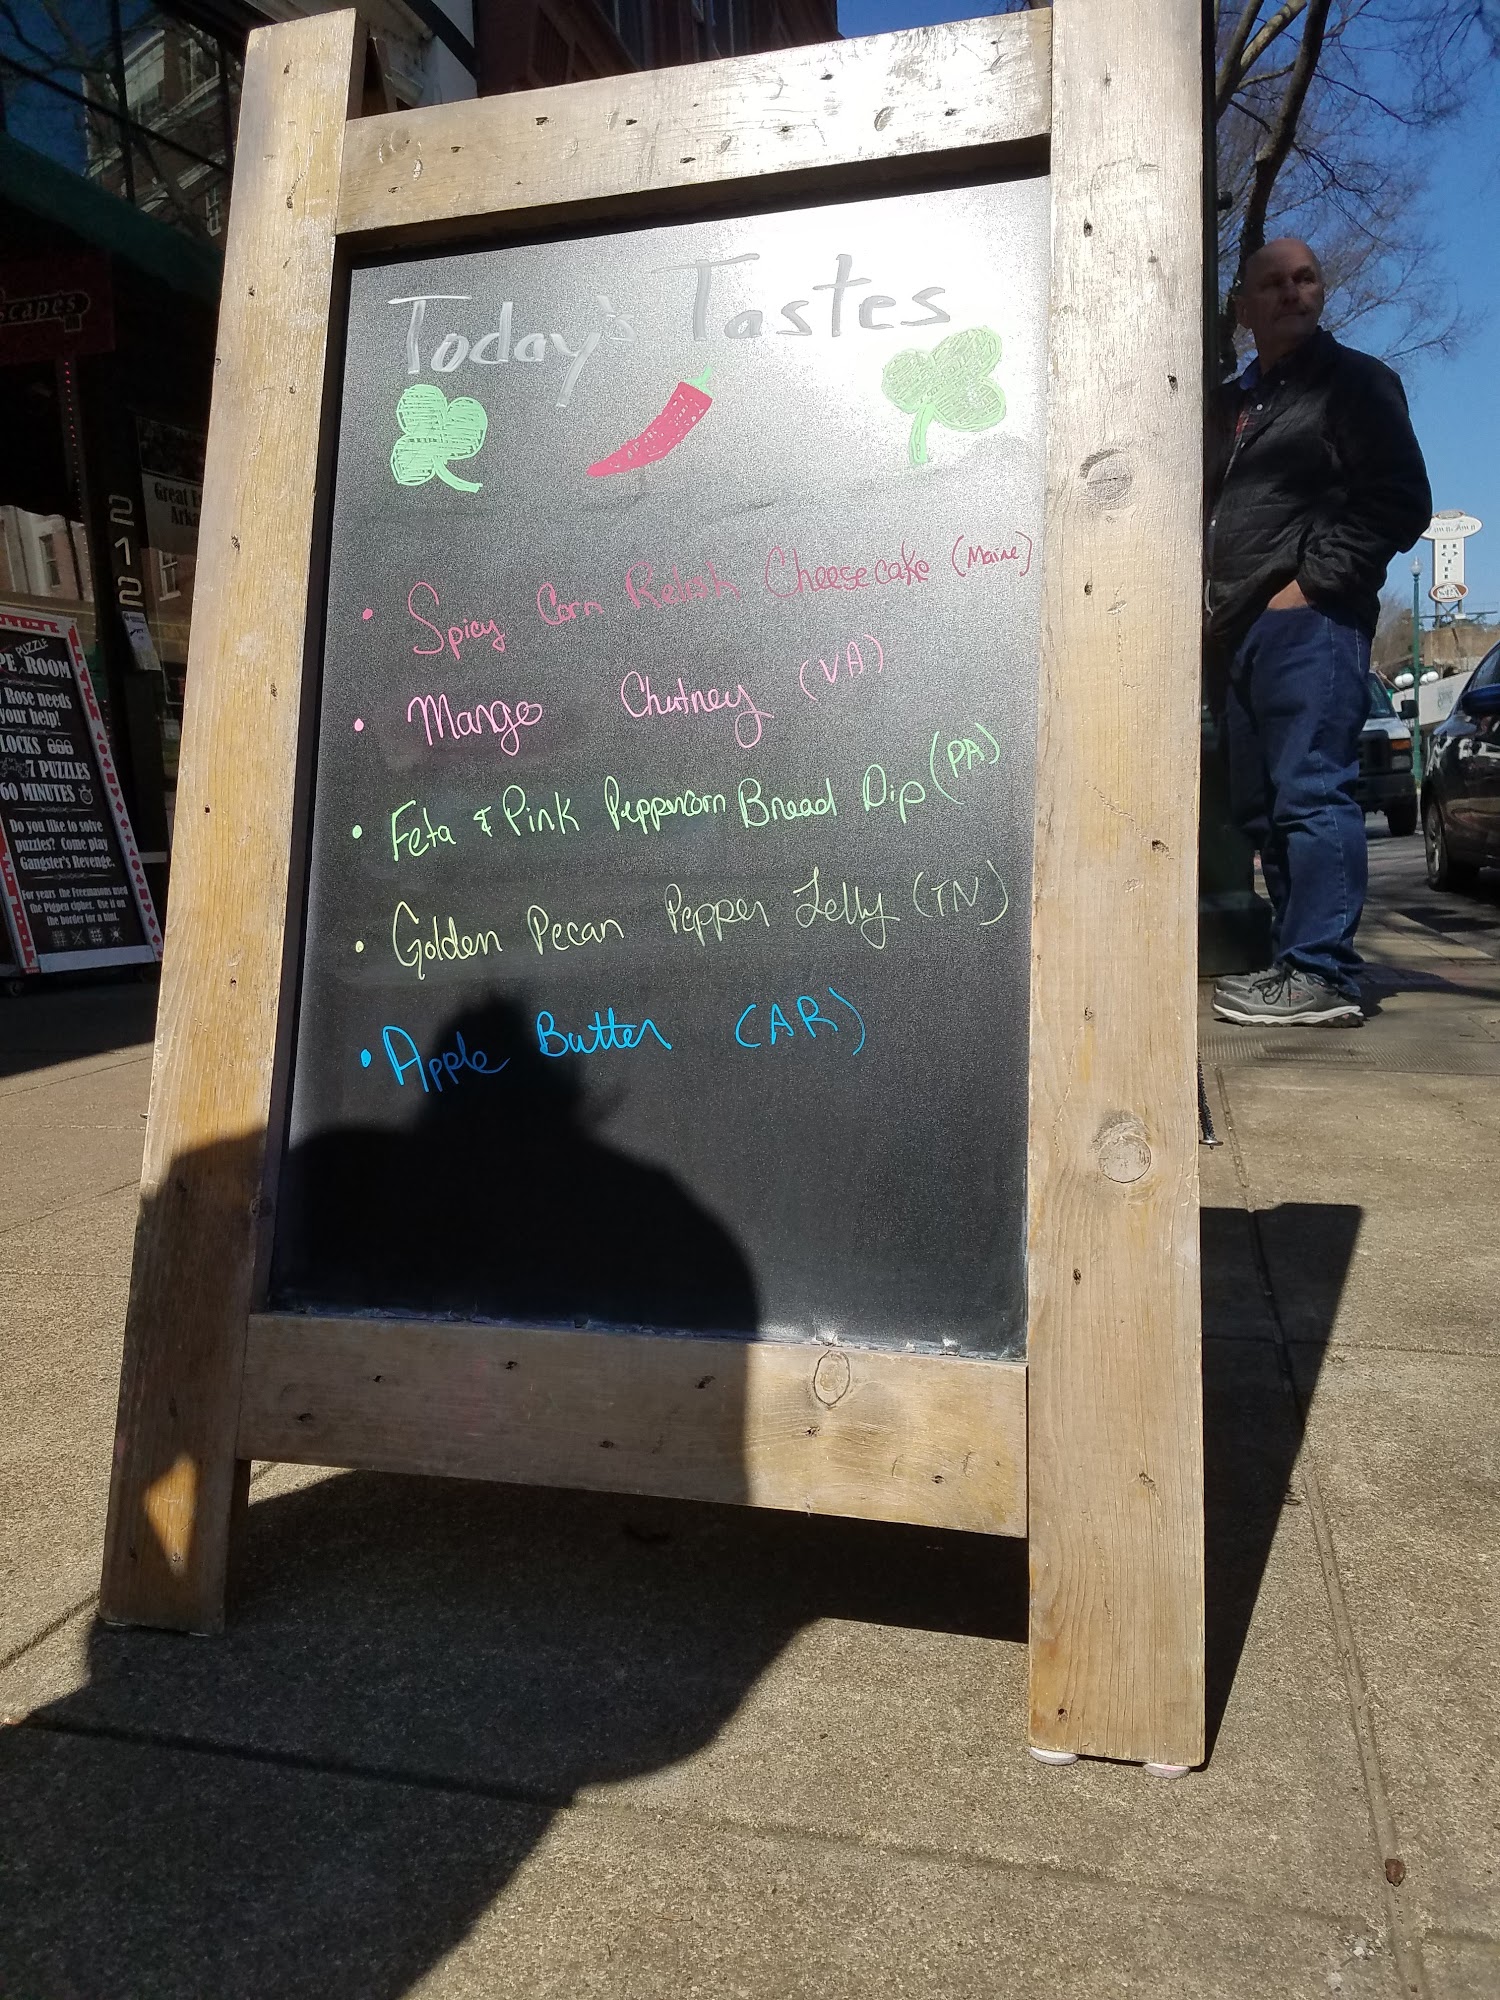 Today's Tastes
• Spicy Corn Relish Cheesecake (Maine)
• Mango Chutney (VA)
• Feta & Pink Peppercorn Bread Dip (PA)
• Golden Pecan Pepper Jelly (TN)
• Apple Butter (AR)
scapes
2
1
2
Great
PUZZLE
ROOM
Rose needs
your help!
LOCKS
7 PUZZLES
60 MINUTES
Do you like to solve
puzzles? Come play
Gangster's Revenge.
For years the Freemasons used
the Pigpen cipher. Use it on
the border for a hint.